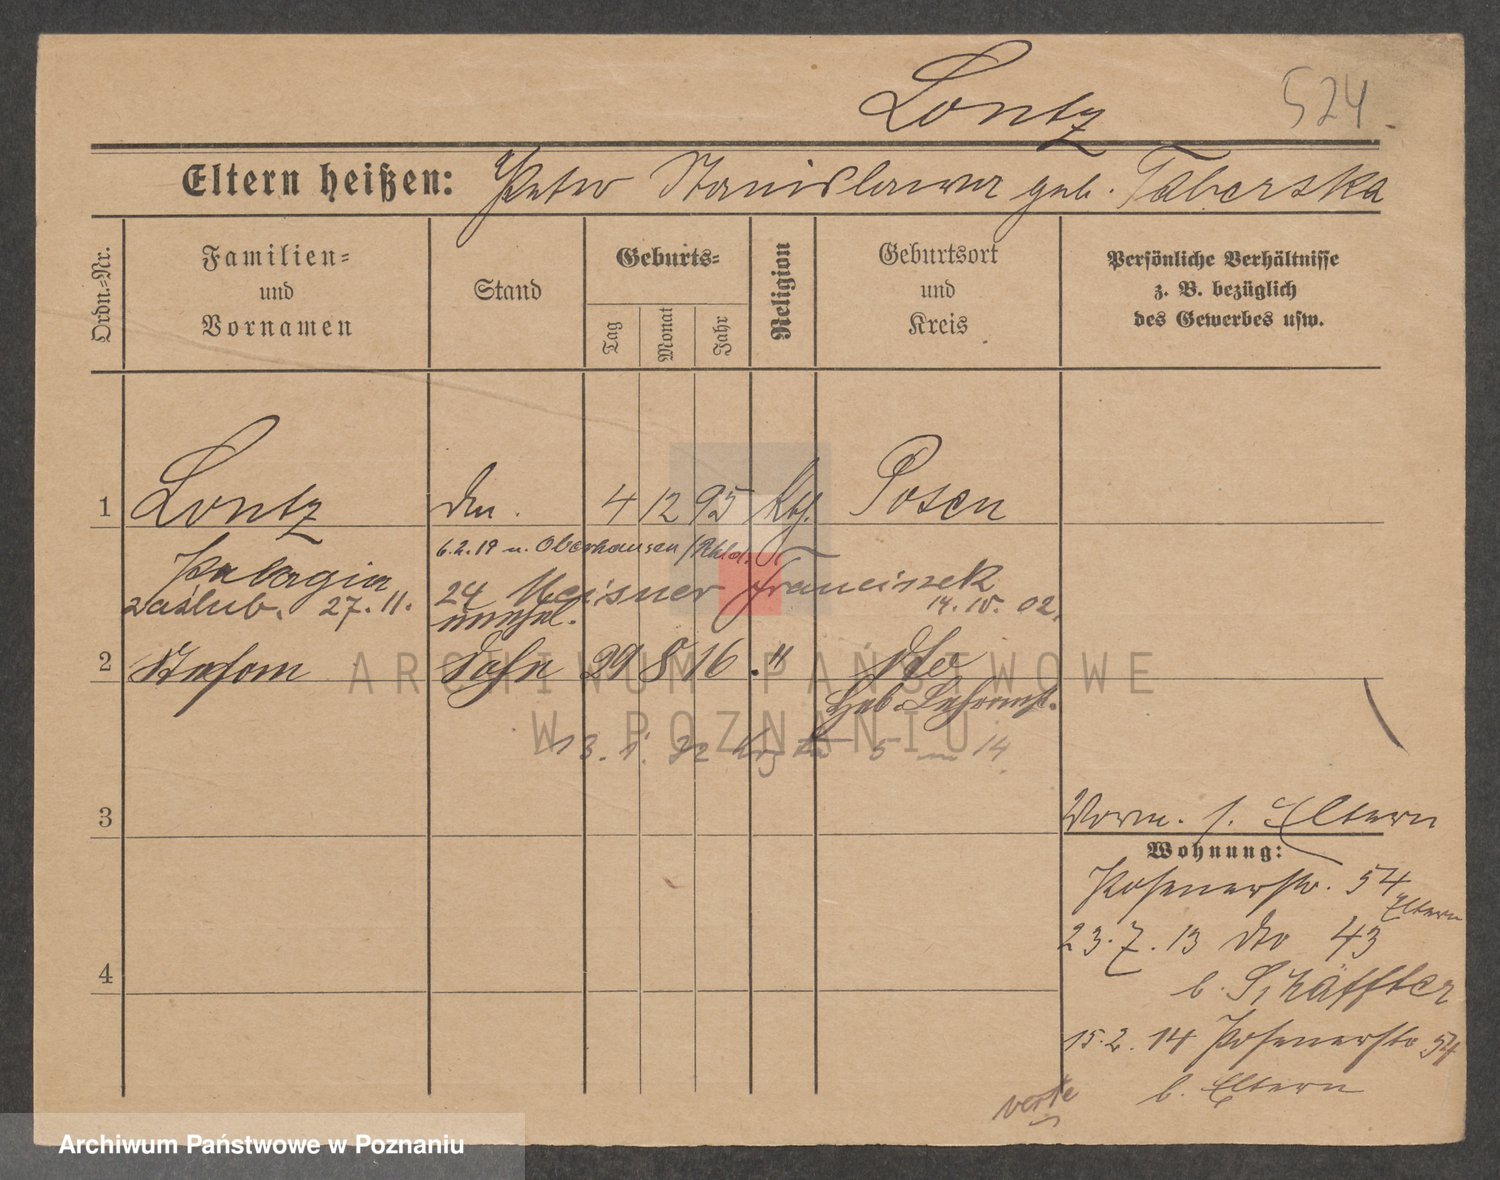 Lontz
524
Eltern heißen: Peter Stanislawa geb. Taberska
Ordn.-Nr.
Familien-
und
Vornamen
Stand
Geburts-
Tag
Monat
Jahr
Religion
Geburtsort
und
Kreis
Persönliche Verhältnisse
z. B. bezüglich
des Gewerbes usw.
1 Lontz 4 12 95 kth. Posen
6.2.19 n. Oberhausen /Rhld.
Pelagia
zaślub. 27.11.
24 Meisner Franciszek
14. 10. 02.
unehel.
2 Stefan Sohn 29 8 16 " dto
13. 1. 22
3
4
Vorm. s. Eltern
Wohnung:
Posenerstr. 54
Eltern
23.7.13 dto 43
b. Schäffler
15.2.14 Posenerstr 54
b. Eltern
verte
ARCHIWUM PAŃSTWOWE
W POZNANIU
Archiwum Państwowe w Poznaniu